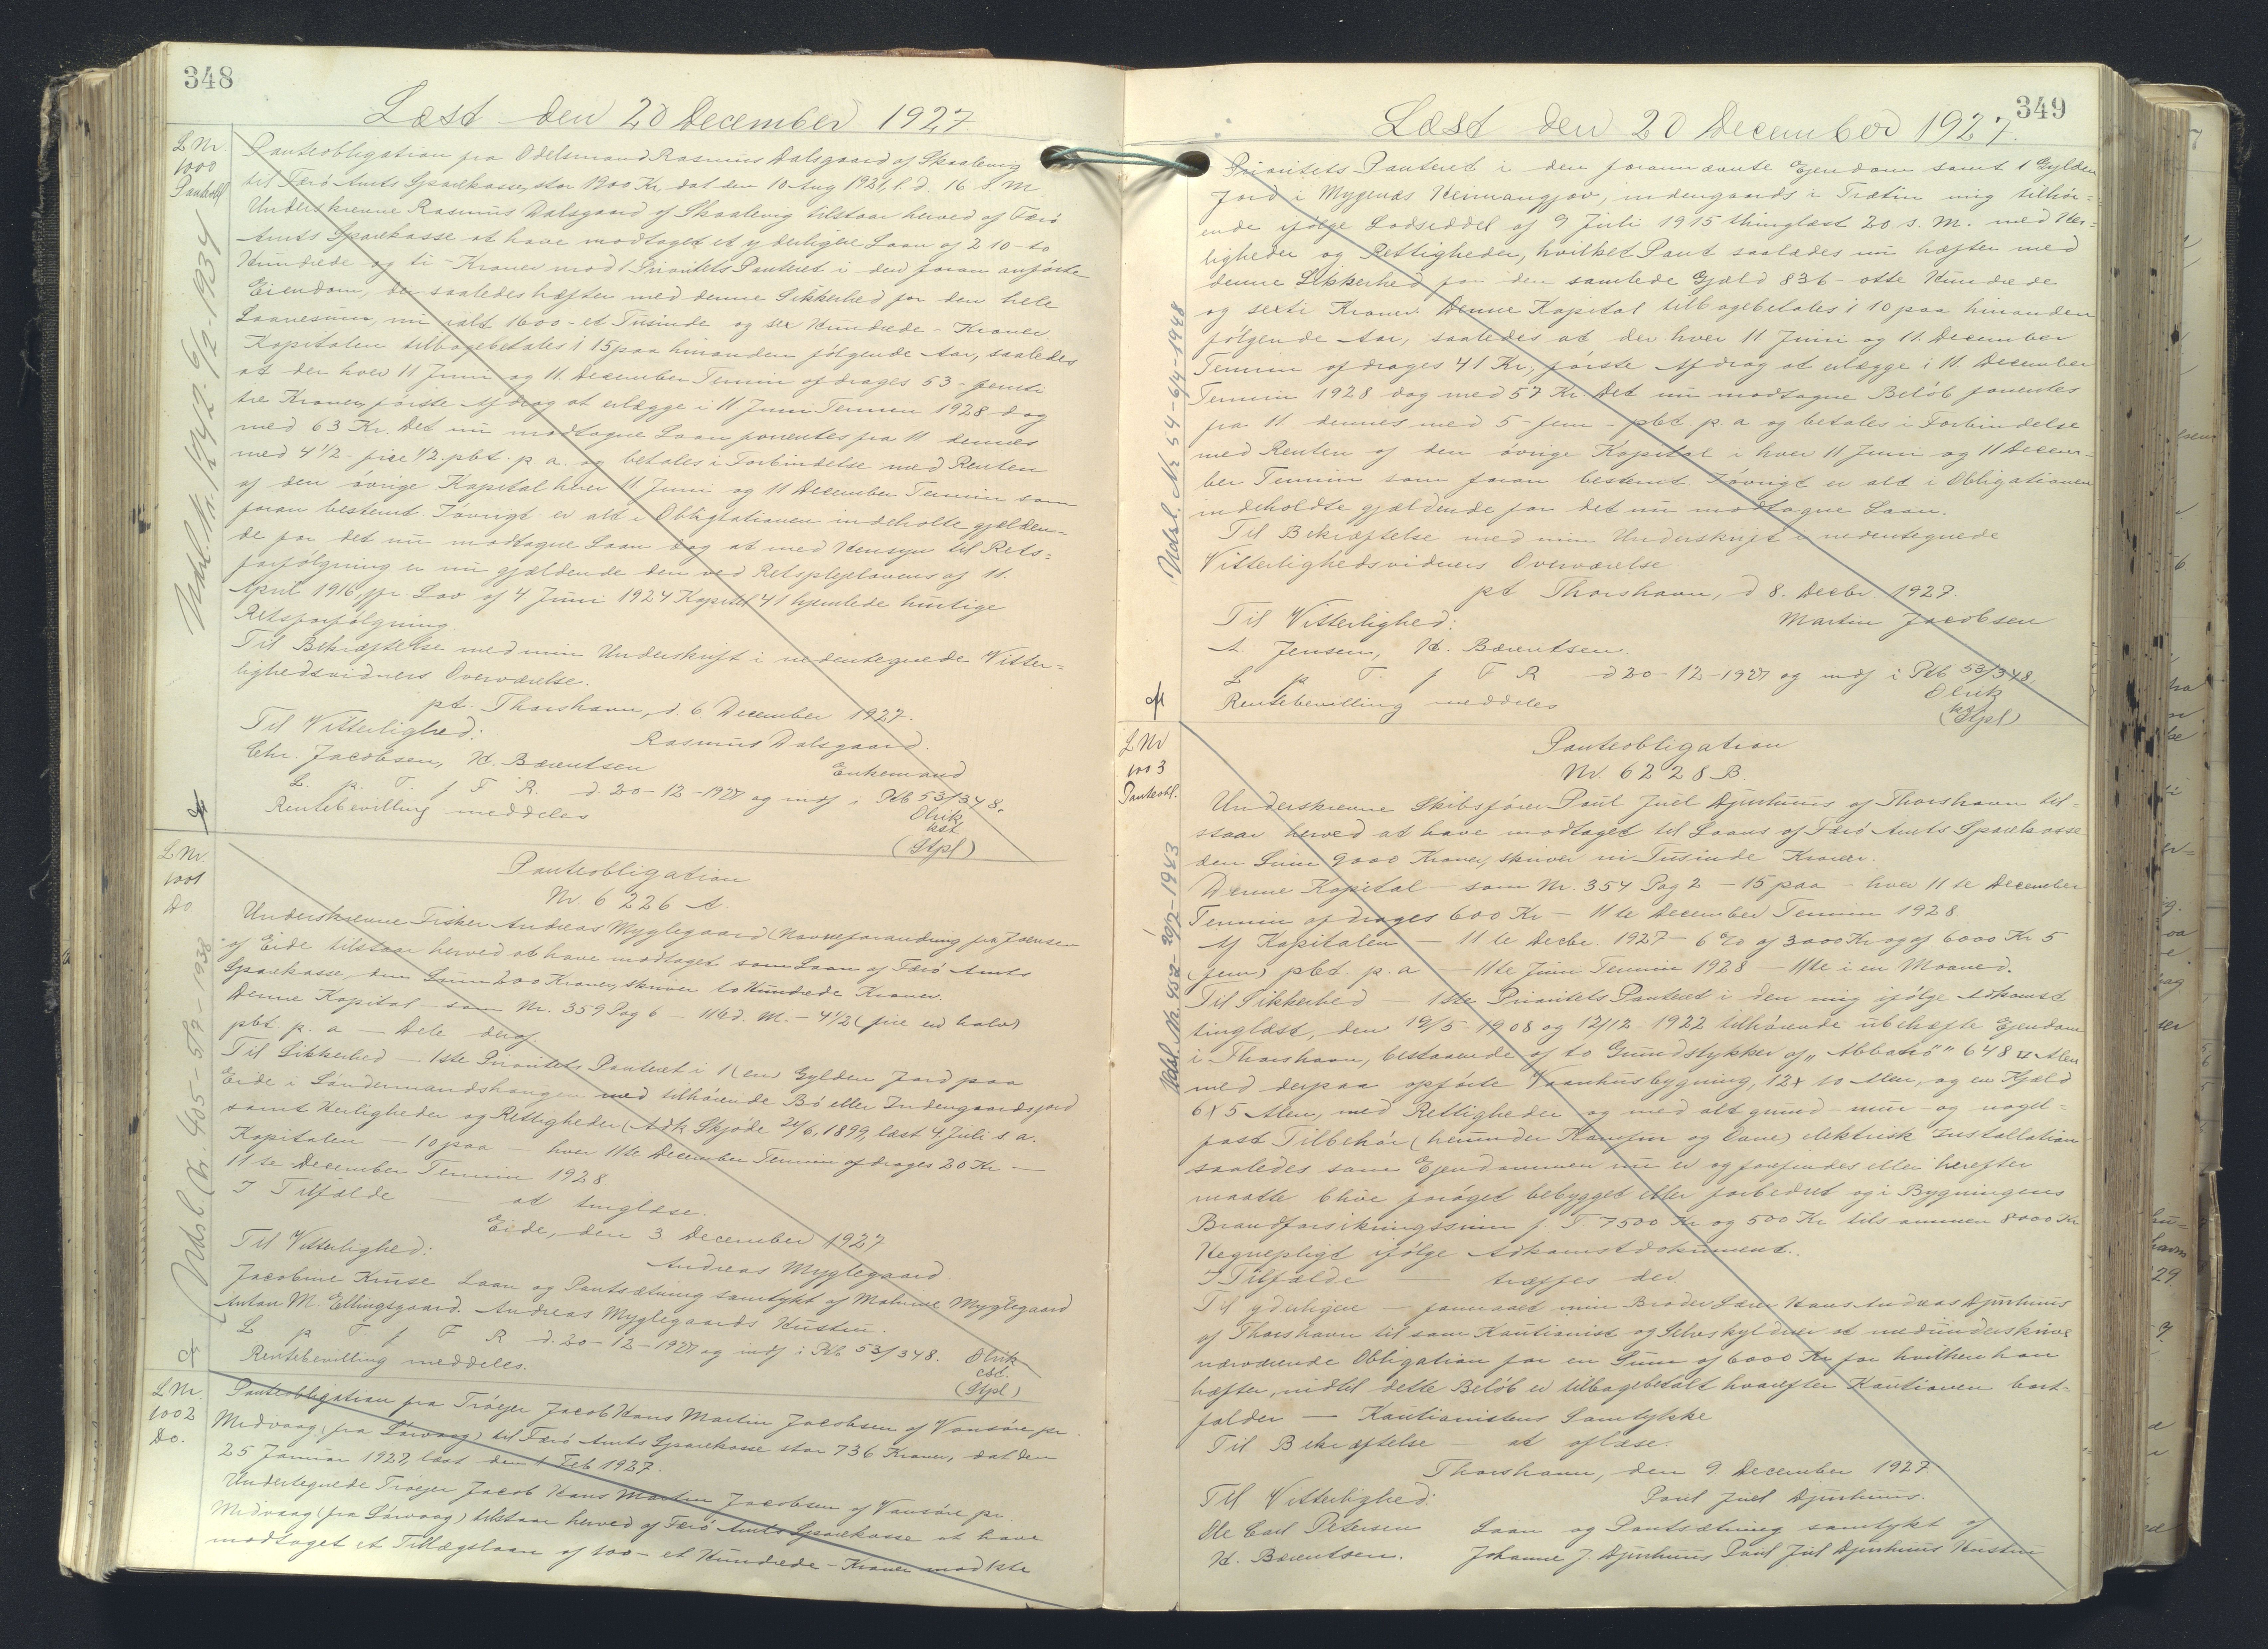 348
Læst den 20 December 1927
L Nr.
1000
Panteobl
Udsl. Nr. 1242. 6/12-1934
Panteobligation fra Odelsmand Rasmus Dalsgaard af Skaalevig
til Færö Amts Sparekasse, stor 1900 Kr, dat den 10 Aug 1921, l. d. 16 s. M.
Underskrevne Rasmus Dalsgaard af Skaalevig tilstaar herved af Færö
Amts Sparekasse at have modtaget et yderligere Laan af 210 - to
Hundrede og ti - Kroner mod 1 Prioritets Panteret i den foran anførte
Eiendom, der saaledes hæfter med denne Sikkerhed for den hele
Laanesum, nu ialt 1600 - et Tusinde og sex Hundrede - Kroner.
Kapitalen tilbagebetales i 15 paa hinanden følgende Aar, saaledes
at der hver 11 Juni og 11. December Termin afdrages 53 - femti
tre Kroner, første Afdrag at erlægge i 11 Juni Termin 1928 dog
med 63 Kr. Det nu modtagne Laan forrentes fra 11 dennes
med 4 1/2 - fire 1/2. pbt. p. a. og betales i Forbindelse med Renten
af den övrige Kapital hver 11 Juni og 11 December Termin som
foran bestemt. Iövrigt er alt i Obligtationen indeholte gjælden-
de for det nu modtagne Laan dog at med Hensyn til Rets=
forfölgning er nu gjældende den ved Retsplejelovens af 11.
April 1916, jfr. Lov af 4 Juni 1924 Kapitel 41 hjemlede hurtige
Retsforfölgning.
Til Bekræftelse med min Underskrift i nedentegnede Vitter=
lighedsvidners Overværelse.
pt. Thorshavn, d. 6 December 1927.
Til Vitterlighed:
Rasmus Dalsgaard.
Chr. Jacobsen, H. Bærentsen
Enkemand
L. p. T. f F. R. d. 20-12-1927 og indf i Ptb 53/348.
Rentebevilling meddeles
Olrik
kst
(Stpl)
L Nr.
1001
Do
Udsl. Nr. 405-5/7-1938
Panteobligation
Nr. 6226 A.
Underskrevne Fisker Andreas Myglegaard (Navneforandring fra Joensen
af Eide tilstaar herved at have modtaget som Laan af Færö Amts
Sparekasse, den Sum 200 Kroner, skriver to Hundrede Kroner.
Denne Kapital - som Nr. 359 Pag 6 - 11te d. M. - 4 1/2 (fire en halv)
pbt. p. a - Dele deraf.
Til Sikkerhed - 1ste Prioritets Panteret i 1 (en) Gylden Jord paa
Eide i Sóndermandshaugen med tilhörende Bö eller Indengaardsjord
samt Herligheder og Rettigheder (Adk. Skjøde 21/6, 1899, læst 4. Juli s a.
Kapitalen - 10 paa - hver 11te December Termin afdrages 20 Kr -
11te December Termin 1928
I Tilfælde - at tinglæse.
Eide, den 3 December 1927
Til Vitterlighed:
Andreas Myglegaard
Jacobine Kruse Laan og Pantsætning samtykt af Malene Myglegaard
Anton M. Ellingsgaard. Andreas Myglegaards Hustru.
L p T f F R d. 20-12-1927 og indf i Ptb 53/348.
Olrik
cst.
Rentebevilling meddeles.
(Stpl)
L Nr.
1002
Do.
Panteobligation fra Tröejer Jacob Hans Martin Jacobsen af Vansöre pr
Midvaag, (fra Sörvaag) til Færö Amts Sparekasse stor 736 Kroner, dat den
25 Januar 1927, læst den 1 Feb 1927.
Undertegnede Tröejer Jacob Hans Martin Jacobsen af Vansöre pr.
Midvaag (fra Sörvaag) tilstaar herved af Færö Amts Sparekasse at have
modtaget et Tillægslaan af 100 - et Hundrede - Kroner mod 1ste
349
Læst den 20 December 1927.
Udsl. Nr 54-6/4-1948
Prioritets Panteret i den forannævnte Ejendom samt 1 Gylden
Jord i Mygenæs Heimangjáv, indengaards i Trætin mig tilhør=
ende ifølge Lodseddel af 9 Juli 1915 thinglæst 20 s. M. med Her=
ligheder og Rettigheder, hvilket Pant saaledes nu hæfter med
denne Sikkerhed for den samlede Gjæld 836 - otte Hundrede
og sexti Kroner. Denne Kapital tilbagebetales i 10 paa hinanden
følgende Aar, saaledes at der hver 11 Juni og 11. December
Termin afdrages 41 Kr, første Afdrag at erlægge i 11. December
Termin 1928 dog med 57 Kr. Det nu modtagne Belöb forrentes
fra 11 dennes med 5 - fem - pbt. p. a og betales i Forbindelse
med Renten af den övrige Kapital i hver 11 Juni og 11 Decem-
ber Termin som foran bestemt. Iövrigt er alt i Obligationen
indeholdte gjældende for det nu modtagne Laan.
Til Bekræftelse med min Underskrift i nedentegnede
Vitterlighedsvidners Overværelse
pt Thorshavn, d 8. Decbr 1927.
Til Vitterlighed:
Martin Jacobsen
A. Jensen, H. Bærentsen.
L p T. f F R d 20-12-1927 og indf i Ptb 53/348.
Rentebevilling meddeles
Olrik
kst
(Stpl)
L Nr
1003
Panteobl.
Udsl. Nr. 452-20/7-1943
Panteobligation
Nr. 6228 B.
Underskrevne Skibsfører Poul Juel Djurhuus af Thorshavn til-
staar herved at have modtaget til Laans af Færö Amts Sparekasse
den Sum 9000 Kroner, skriver ni Tusinde Kroner.
Denne Kapital - som Nr. 354 Pag 2 - 15 paa - hver 11te December
Termin afdrages 600 Kr - 11te December Termin 1928.
Af Kapitalen - 11te Decbr. 1927 - 6 % af 3000 Kr og af 6000 Kr 5
(fem) pbt. p. a - 11te Juni Termin 1928 - 11te i en Maaned.
Til Sikkerhed - 1ste Prioritets Panteret i den mig ifölge Adkomst
tinglæst, den 19/5-1908 og 12/12-1922 tilhørende ubehæfte Ejendom
i Thorshavn, bestaaende af to Grundstykker af "Abbatrö" 648 □ Alen
med derpaa opførte Vaanhusbygning, 12 x 10 Alen, og en Kjæld
6 x 5 Alen, med Rettigheder og med alt grund - mur - og nagel-
fast Tilbehör (herunder Kamfur og Ovne) elektrisk Installation
saaledes som Ejendommen nu er og forefindes eller herefter
maatte blive forøget bebygget eller forbedret og i Bygningens
Brandforsikringssum f. T. 7500 Kr og 500 Kr tilsammen 8000 Kr
Hegnepligt ifölge Adkomstdokument.
I Tilfælde - træffes der.
Til yderligere - formaaet min Broder Lærer Hans Andreas Djurhuus
af Thorshavn til som Kautionist og Selvskyldner at medunderskrive
nærværende Obligation for en Sum af 6000 Kr for hvilken han
hæfter, indtil dette Beløb er tilbagebetalt hvorefter Kautionen bort-
falder - Kautionistens Samtykke
Til Bekræftelse - at aflæse.
Thorshavn, den 9 December 1927
Til Vitterlighed:
Poul Juel Djurhuus.
Ole Carl Petersen
Laan og Pantsætning samtykt af
H. Bærentsen.
Johanne J. Djurhuus Poul Juel Djurhuus Hustru